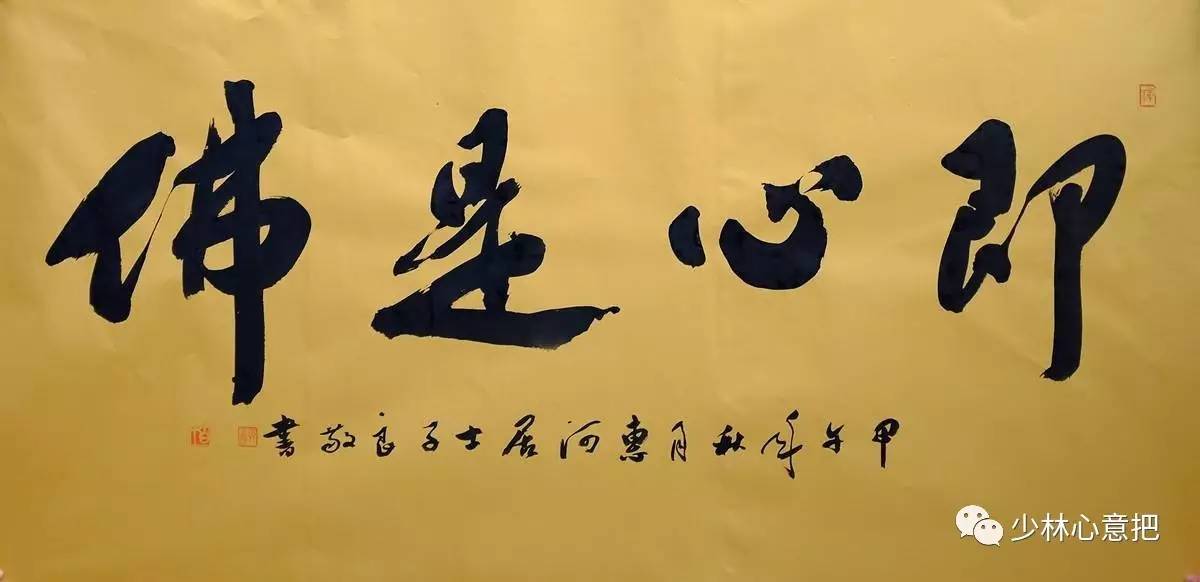 即心是佛
甲午年秋月惠河居士子良敬書
少林心意把